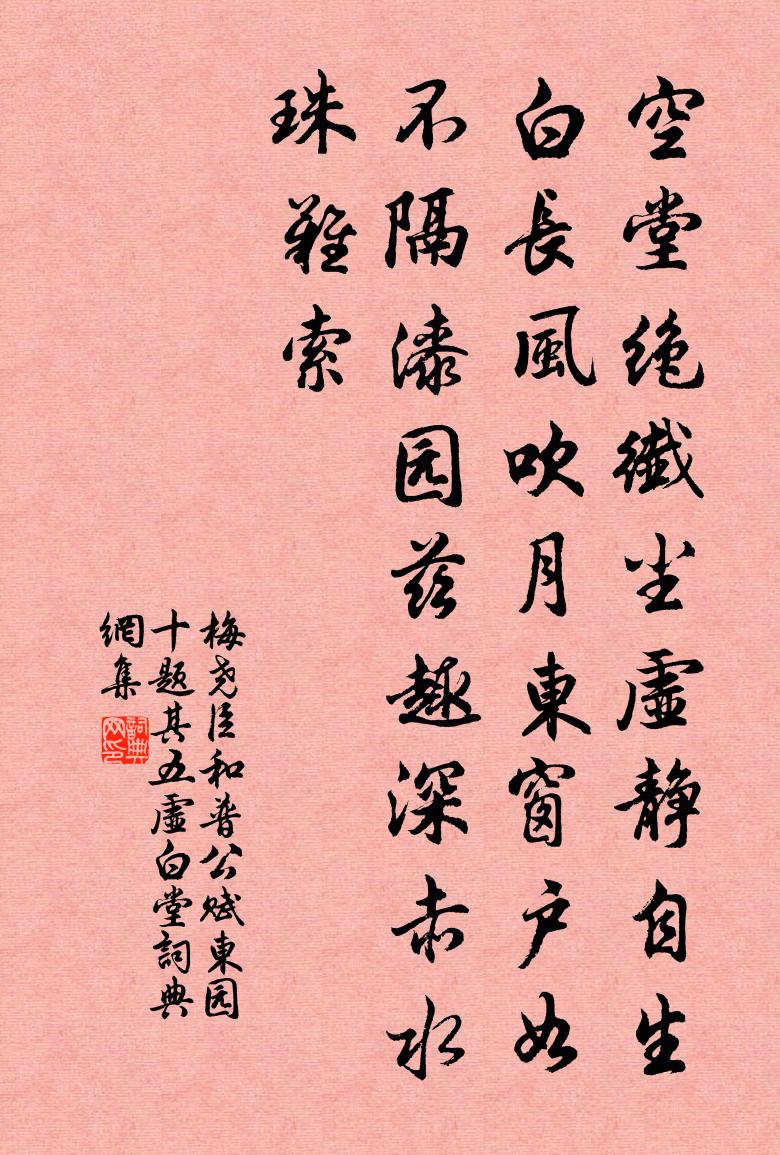 空堂绝纎尘虚静自生
白長風吹月東窗户如
不隔漆园兹趣深赤水
珠難索
梅尧臣和普公赋東园
十题其五虚白堂詞典
網集
詞典网印